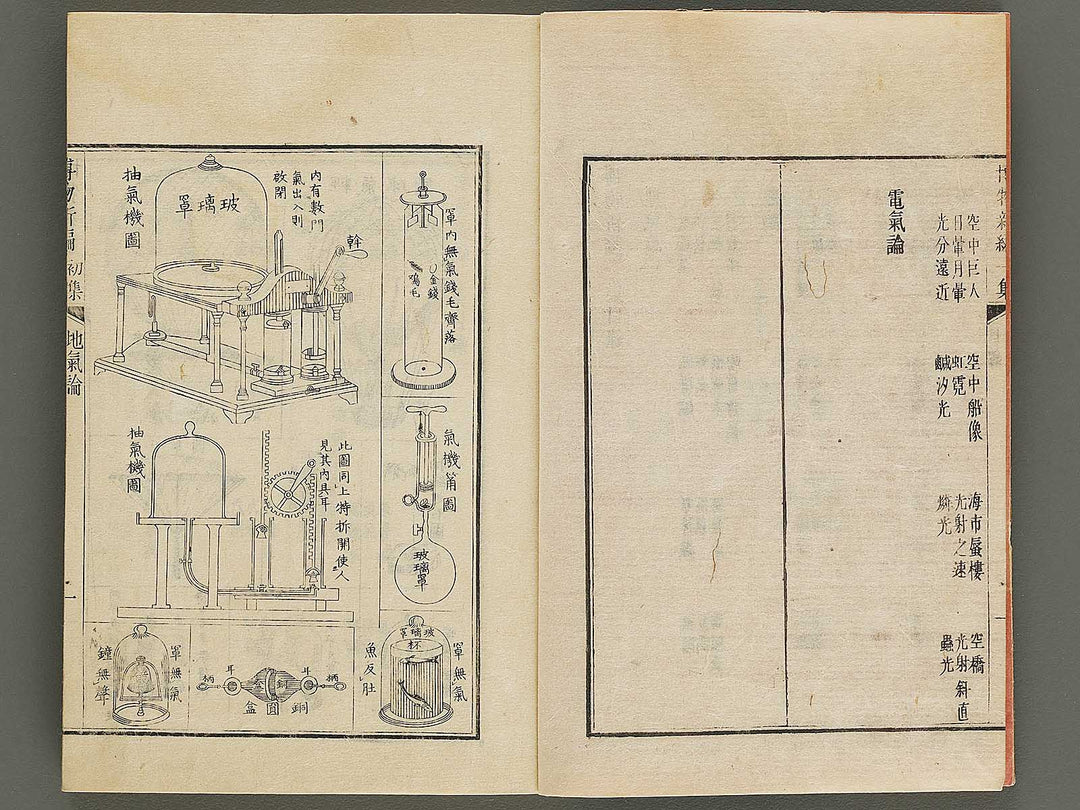 空中巨人
日暈月暈
光分遠近
空中船像
虹霓
鹹汐光
海市蜃樓
光射之速
燐光
空橋
光射斜直
蟲光
電氣論
罩內無氣錢毛齊落
金錢
鳮毛
氣機筩圖
玻璃罩
罩無氣
玻璃罩
杯
魚反肚
內有數門
氣出入則
啟閉
幹
玻璃罩
抽氣機圖
此圖同上特拆開使人
見其內具耳
抽氣機圖
柄
耳
銅
耳
柄
銅圓盒
罩無氣
鐘無聲
博物新編
初集
地氣論